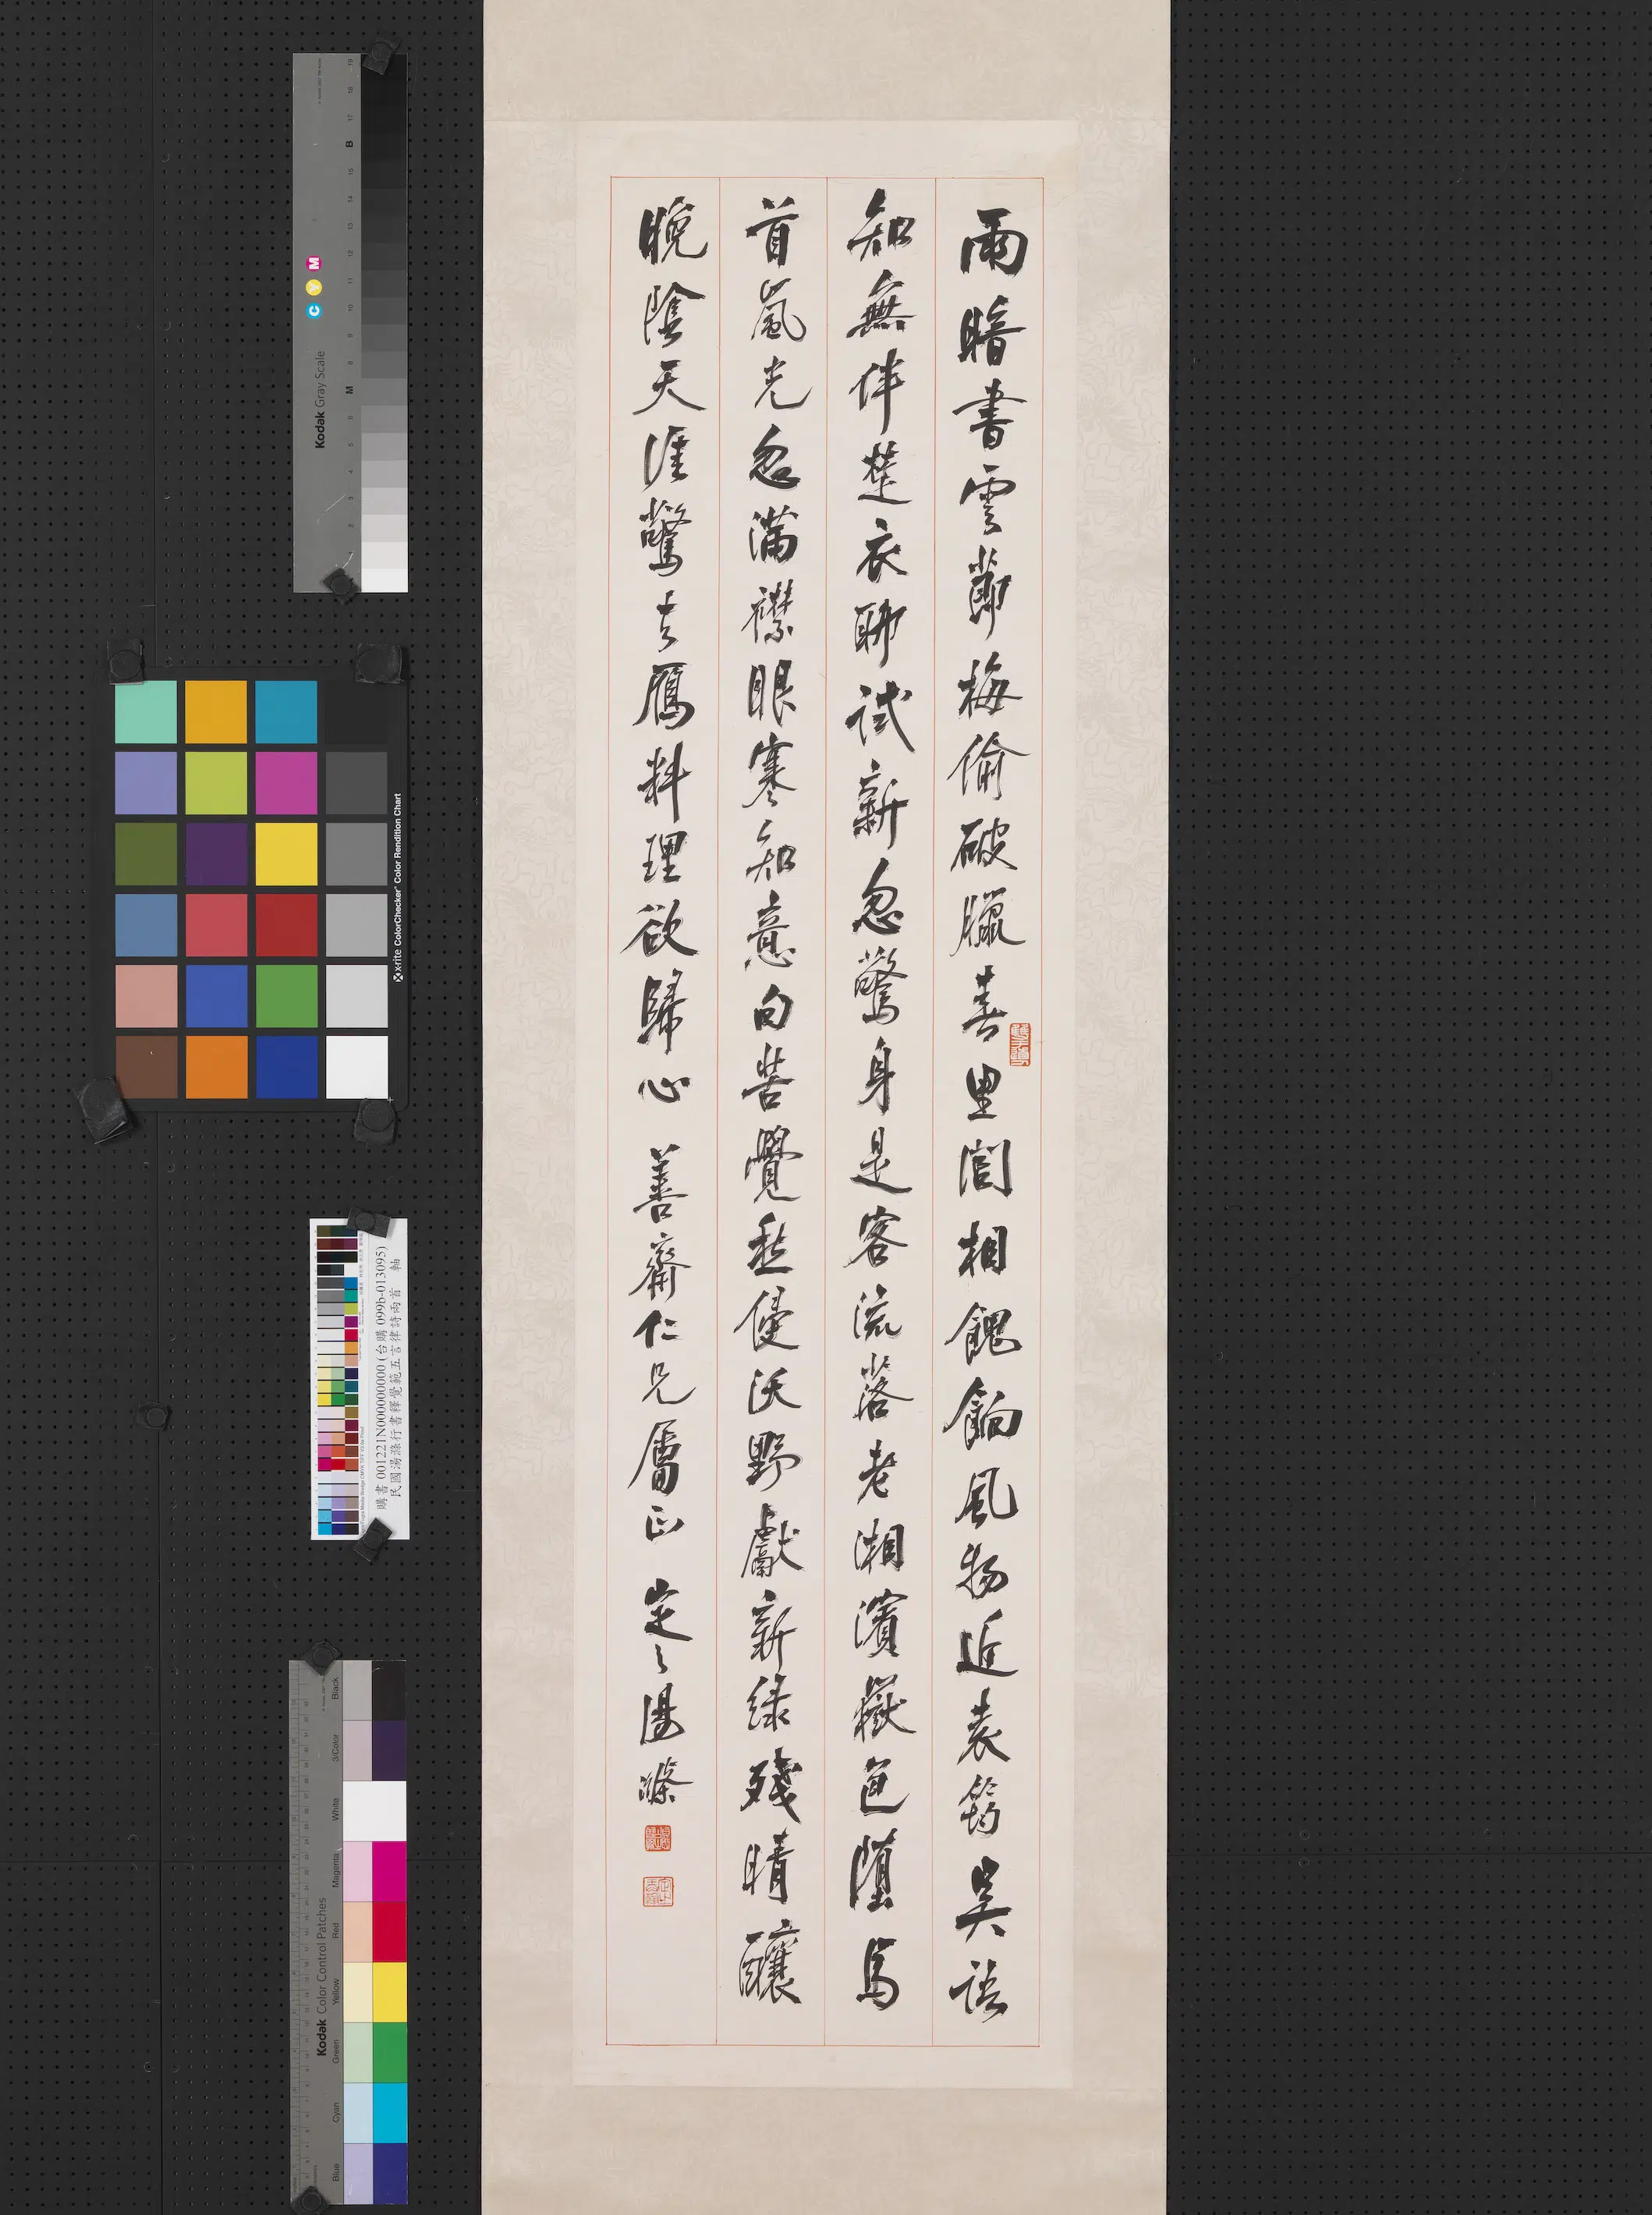 雨暗書雲節梅偷破臘春里閭相餽餉風物近袁筠吳語
知無伴楚衣聊試新忽驚身是客流落老湘濱嶽色墮馬
首嵐光忽滿襟眼寒知意向苦覺愁侵沃野獻新綠殘晴釀
晚陰天涯驚去鴈料理欲歸心 善齋仁兄屬正 定之湯滌
Kodak Gray Scale
C Y M
A 1 2 3 4 5 6 M 8 9 10 11 12 13 14 15 B 17 18 19
x-rite ColorChecker Color Rendition Chart
購書 001221N000000000 (台購 099b-013095)
民國湯滌行書釋覺範五言律詩兩首 軸
Kodak Color Control Patches
Blue Cyan Green Yellow Red Magenta White 3/Color Black